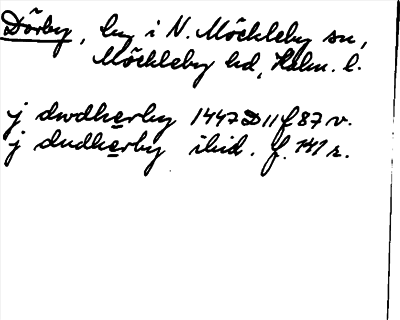 Dörby, by i N. Möckleby sn,
Möckleby hd, Kalm. l.
j dwdherby 1447 D 11 f 87 v.
j dudherby ibid. f. 141 r.